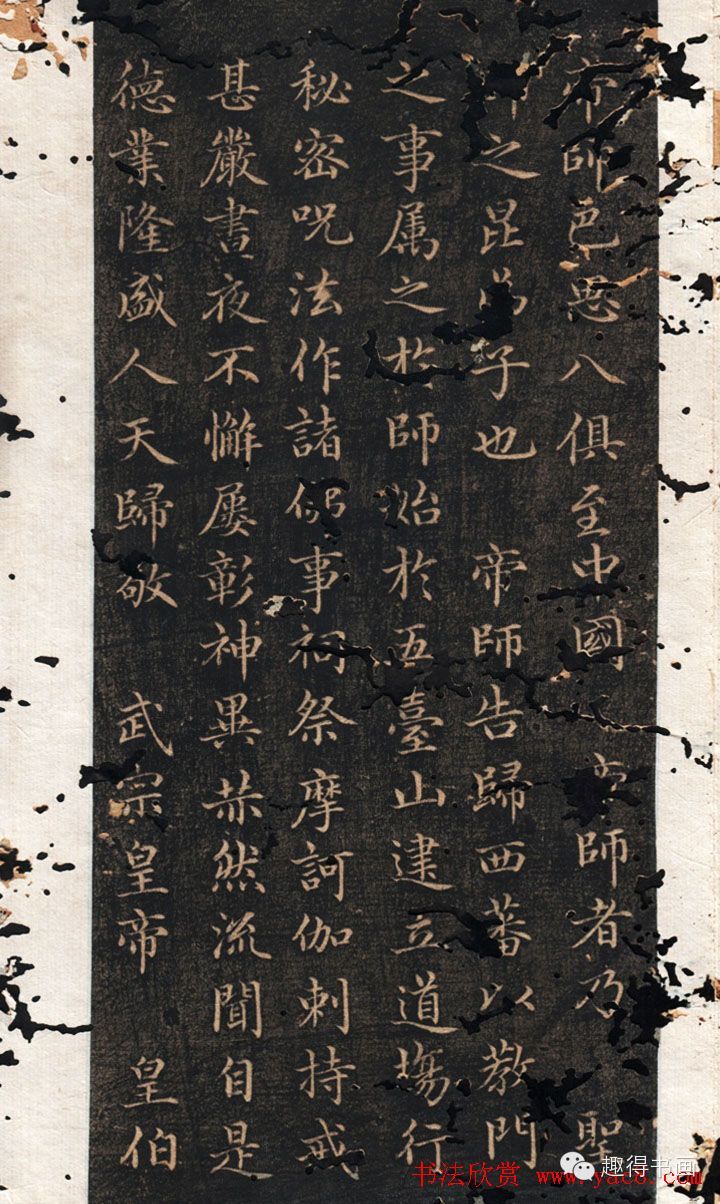 帝師巴思八俱至中國 帝師者乃 聖
之昆弟子也 帝師告歸西蕃以教門
之事属之於師始於五臺山建立道場行
秘密呪法作諸佛事祠祭摩訶伽剌持戒
甚嚴晝夜不懈屢彰神異赫然流聞自是
德業隆盛人天歸敬 武宗皇帝 皇伯
趣得书画
书法欣赏 www.yac8.com